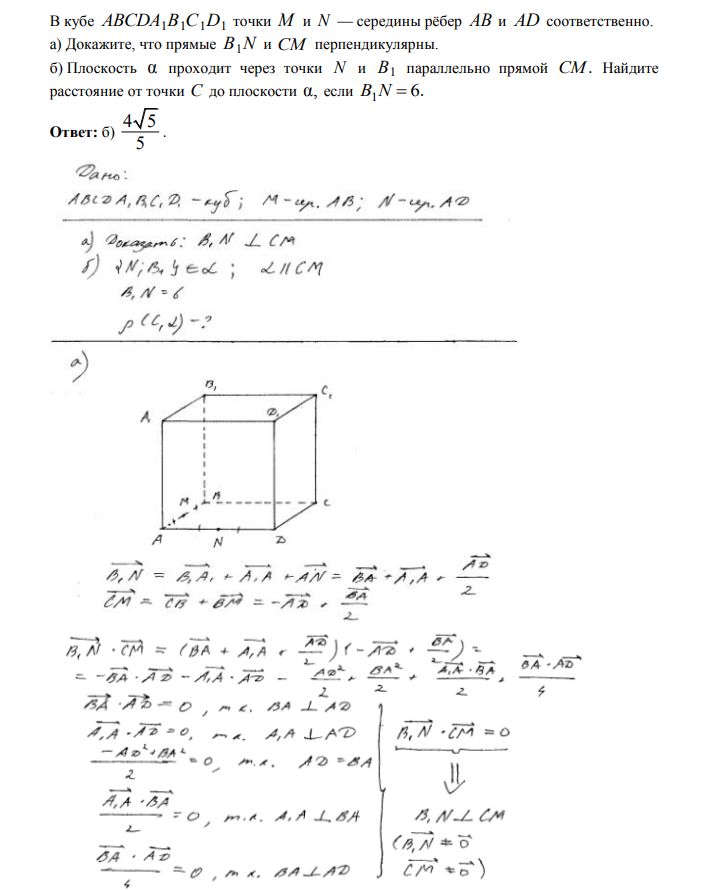 В кубе ABCDA₁B₁C₁D₁ точки M и N — середины рёбер AB и AD соответственно.
а) Докажите, что прямые B₁N и CM перпендикулярны.
б) Плоскость α проходит через точки N и B₁ параллельно прямой CM. Найдите
расстояние от точки C до плоскости α, если B₁N = 6.
Ответ: б) 4√5/5 .
Дано:
ABCDA₁B₁C₁D₁ - куб; M - сер. AB; N - сер. AD
а) Доказать: B₁N ⊥ CM
б) {N; B₁} ∈ α ; α || CM
B₁N = 6
ρ(C, α) - ?
а)
B₁ C₁
A₁ D₁
M B C
A N D
B₁N = B₁A₁ + A₁A + AN = BA + A₁A + AD/2
CM = CB + BM = -AD + BA/2
B₁N · CM = (BA + A₁A + AD/2)(-AD + BA/2) =
= -BA · AD - A₁A · AD - AD²/2 + BA²/2 + A₁A · BA/2 + BA · AD/4
BA · AD = 0, т.к. BA ⊥ AD
A₁A · AD = 0, т.к. A₁A ⊥ AD
B₁N · CM = 0
(-AD² + BA²)/2 = 0, т.к. AD = BA
⇓
A₁A · BA/2 = 0, т.к. A₁A ⊥ BA
B₁N ⊥ CM
(B₁N ≠ 0
BA · AD/4 = 0, т.к. BA ⊥ AD
CM ≠ 0)